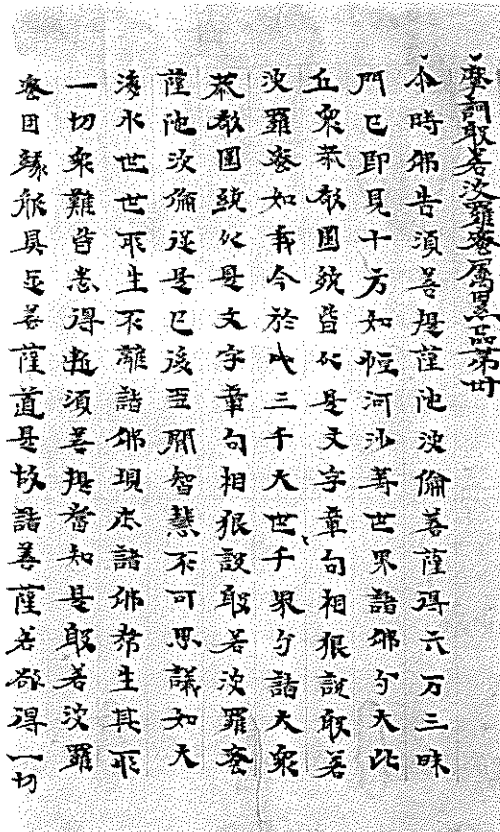 摩訶般若波羅蜜囑累品第卌
尒時佛告須菩提薩陁波倫菩薩得六万三昧
門已即見十方如恒河沙等世界諸佛与大比
丘衆恭敬圍繞皆以是文字章句相貎說般若
波羅蜜如我今於此三千大世千界与諸大衆
恭敬圍繞以是文字章句相貎說般若波羅蜜
薩陁波倫從是已後多聞智慧不可思議如大
海水世世所生不離諸佛現在諸佛常生其所
一切衆難皆悉得断須菩提當知是般若波羅
蜜因緣能具足菩薩道是故諸菩薩若欲得一切